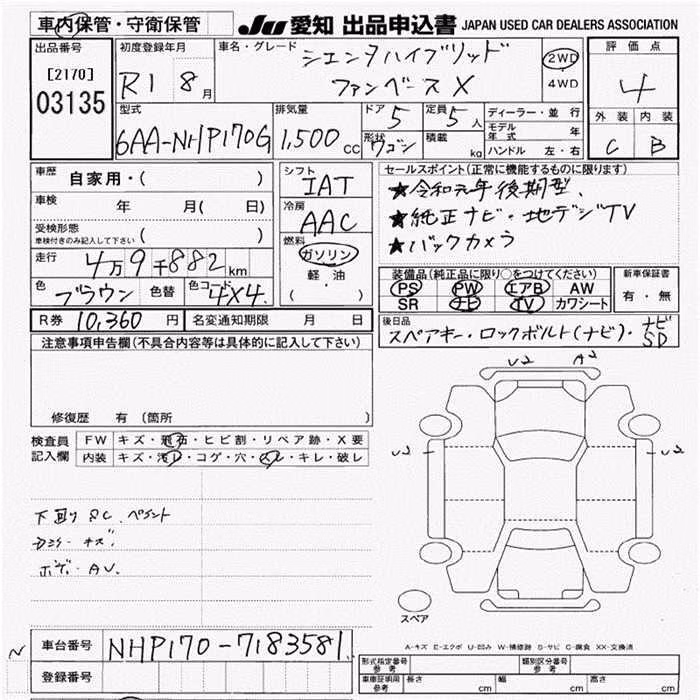 車内保管・守衛保管
JU 愛知 出品申込書 JAPAN USED CAR DEALERS ASSOCIATION
出品番号
[2170]
03135
初度登録年月
R1 8月
車名・グレード
シエンタハイブリッド
ファンベース X
2WD
4WD
評価点
4
外装 内装
C B
型式
6AA-NHP170G
排気量
1,500 cc
ドア 5
形状 ワゴン
定員 5人
積載 kg
ディーラー・並行
モデル年式 年
ハンドル 左・右
車歴 自家用・( )
車検 年 月( 日)
受検形態
車検付きのみ記入して下さい ( )
走行 4万9千882km
色 ブラウン 色替 色コード 4X4.
シフト
IAT
冷房
AAC
燃料
ガソリン
軽・油
( )
セールスポイント(正常に機能するものに限ります)
★令和元年後期型、
★純正ナビ・地デジTV
★バックカメラ
装備品(純正品に限り○をつけてください)
PS PW エアB AW
SR ナビ TV カワシート
新車保証書
有・無
R券 10,360 円 名変通知期限 月 日
後日品
スペアキー・ロックボルト(ナビ)・ナビSD
注意事項申告欄(不具合内容等は具体的に記入して下さい)
修復歴 有 〔箇所 〕
検査員記入欄
FW キズ・飛石・ヒビ割・リペア跡・X要
内装 キズ・汚レ・コゲ・穴・スレ・キレ・破レ
下廻り SC、ペイント
キズ
AV.
U2 A2
U2 U2
スペア
A-キズ E-エクボ U-凹み W-補修跡 S-サビ C-腐食 XX-交換済
車台番号 NHP170-7183581
登録番号
N
形式指定番号 参考
類別区分番号 参考
車庫証明用 参考 長さ cm 幅 cm 高さ cm